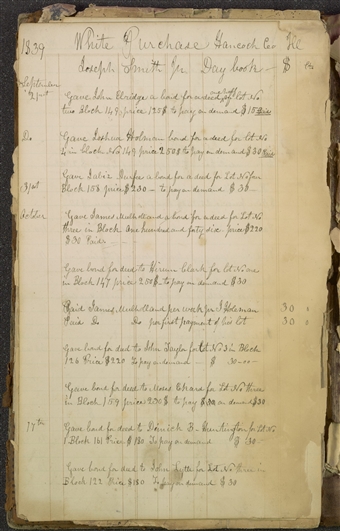 1839 White Purchase Hancock Co Ill
Joseph Smith Jr Day book $ cs
September
21st Gave John Eldridge a bond for a deed of lot No
two Block 149 price 125$ to pay on demand $15 Paid
Do Gave Joshua Holman bond for a deed for lot No
4 in block No 149 price 250$ to pay on demand $30 Paid
Gave Jabiz Durfee a bond for a deed for Lot No four
31st Block 158 price $200 - to pay on demand $ 30 -
October Gave James Mulholland a bond for a deed for Lot No
three in Block one hundred and forty six Price $220
$30 Paid
Gave bond for deed to Hiram Clark for Lot No one
in Block 147 price 250$ to pay on demand $30
Paid James Mulholland per week per J Holeman 30
Paid Do Do per first payment of his lot 30
Gave bond for deed to John Taylor for Lot No 3 in Block
126 Price $220 To pay on demand $ 30-00-
Gave bond for deed to Moses Chard for Lot No three
in Block 159 price 200$ to pay on demand $30
17th Gave bond for deed to Dimick B. Huntington for lot No
1 Block 161 Price $ 180 To pay on demand $ 30 -
Gave bond for deed to John for Lot No three in
Block 122 Price $180 To pay on demand $ 30